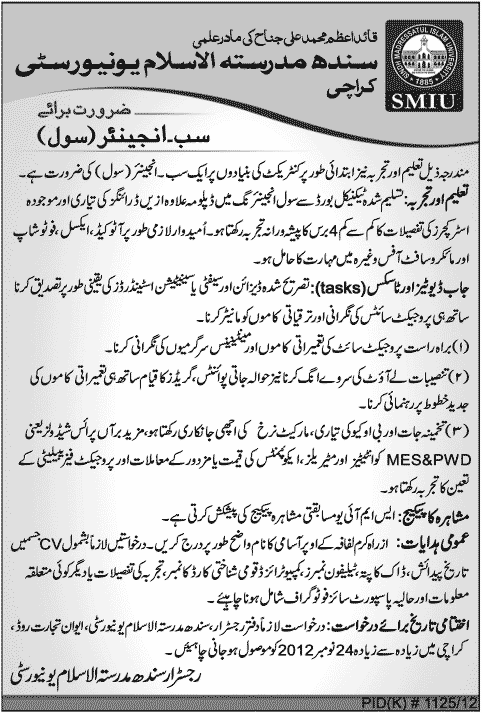 قائد اعظم محمد علی جناح کی مادر علمی
سندھ مدرستہ الاسلام یونیورسٹی
کراچی
SINDH MADRESSATUL ISLAM UNIVERSITY
1885
SMIU
ضرورت برائے
سب۔انجینئر (سول)
مندرجہ ذیل تعلیم اور تجربہ نیز ابتدائی طور پر کنٹریکٹ کی بنیادوں پر ایک سب۔انجینئر (سول) کی ضرورت ہے۔
تعلیم اور تجربہ: تسلیم شدہ ٹیکنیکل بورڈ سے سول انجینئرنگ میں ڈپلومہ علاوہ ازیں ڈرائنگ کی تیاری اور موجودہ
اسٹرکچرز کی تفصیلات کا کم سے کم 4 برس کا پیشہ ورانہ تجربہ رکھتا ہو۔ اُمیدوار لازمی طور پر آٹو کیڈ، ایکسل، فوٹو شاپ
اور مائیکروسافٹ آفس وغیرہ میں مہارت کا حامل ہو۔
جاب ڈیوٹیز اور ٹاسکس (tasks): تصریح شدہ ڈیزائن اور سیفٹی یا سینیٹیشن اسٹینڈرڈز کی یقینی طور پر تصدیق کرنا
ساتھ ہی پروجیکٹ سائٹس کی نگرانی اور ترقیاتی کاموں کو مانیٹر کرنا۔
(۱) براہ راست پروجیکٹ سائٹ کی تعمیراتی کاموں اور مینٹیننس سرگرمیوں کی نگرانی کرنا۔
(۲) تنصیبات لے آؤٹ کی سروے انگ کرنا نیز حوالہ جاتی پوائنٹس، گریڈز کا قیام ساتھ ہی تعمیراتی کاموں کی
جدید خطوط پر رہنمائی کرنا۔
(۳) تخمینہ جات اور بی او کیو کی تیاری، مارکیٹ نرخ کی اچھی جانکاری رکھتا ہو، مزید برآں پرائس شیڈولز یعنی
MES&PWD کوانٹیٹیز اور میٹریلز، ایکوپمنٹس کی قیمت یا مزدور کے معاملات اور پروجیکٹ فیزیبلیٹی کے
تعین کا تجربہ رکھتا ہو۔
مشاہرہ کا پیکیج: ایس ایم آئی یو مسابقتی مشاہرہ پیکیج کی پیشکش کرتی ہے۔
عمومی ہدایات: ازراہ کرم لفافہ کے اوپر آسامی کا نام واضح طور پر درج کریں۔ درخواستیں لازماً بشمول CV جسمیں
تاریخ پیدائش، ڈاک کا پتہ، ٹیلیفون نمبرز، کمپیوٹرائزڈ قومی شناختی کارڈ کا نمبر، تجربہ کی تفصیلات یا دیگر کوئی متعلقہ
معلومات اور حالیہ پاسپورٹ سائز فوٹو گراف شامل ہونا چاہیئے۔
اختتامی تاریخ برائے درخواست: درخواست لازماً دفتر رجسٹرار، سندھ مدرستہ الاسلام یونیورسٹی، ایوان تجارت روڈ،
کراچی میں زیادہ سے زیادہ 24 نومبر 2012 کو موصول ہو جانی چاہئیں۔
رجسٹرار سندھ مدرستہ الاسلام یونیورسٹی
PID(K) # 1125/12